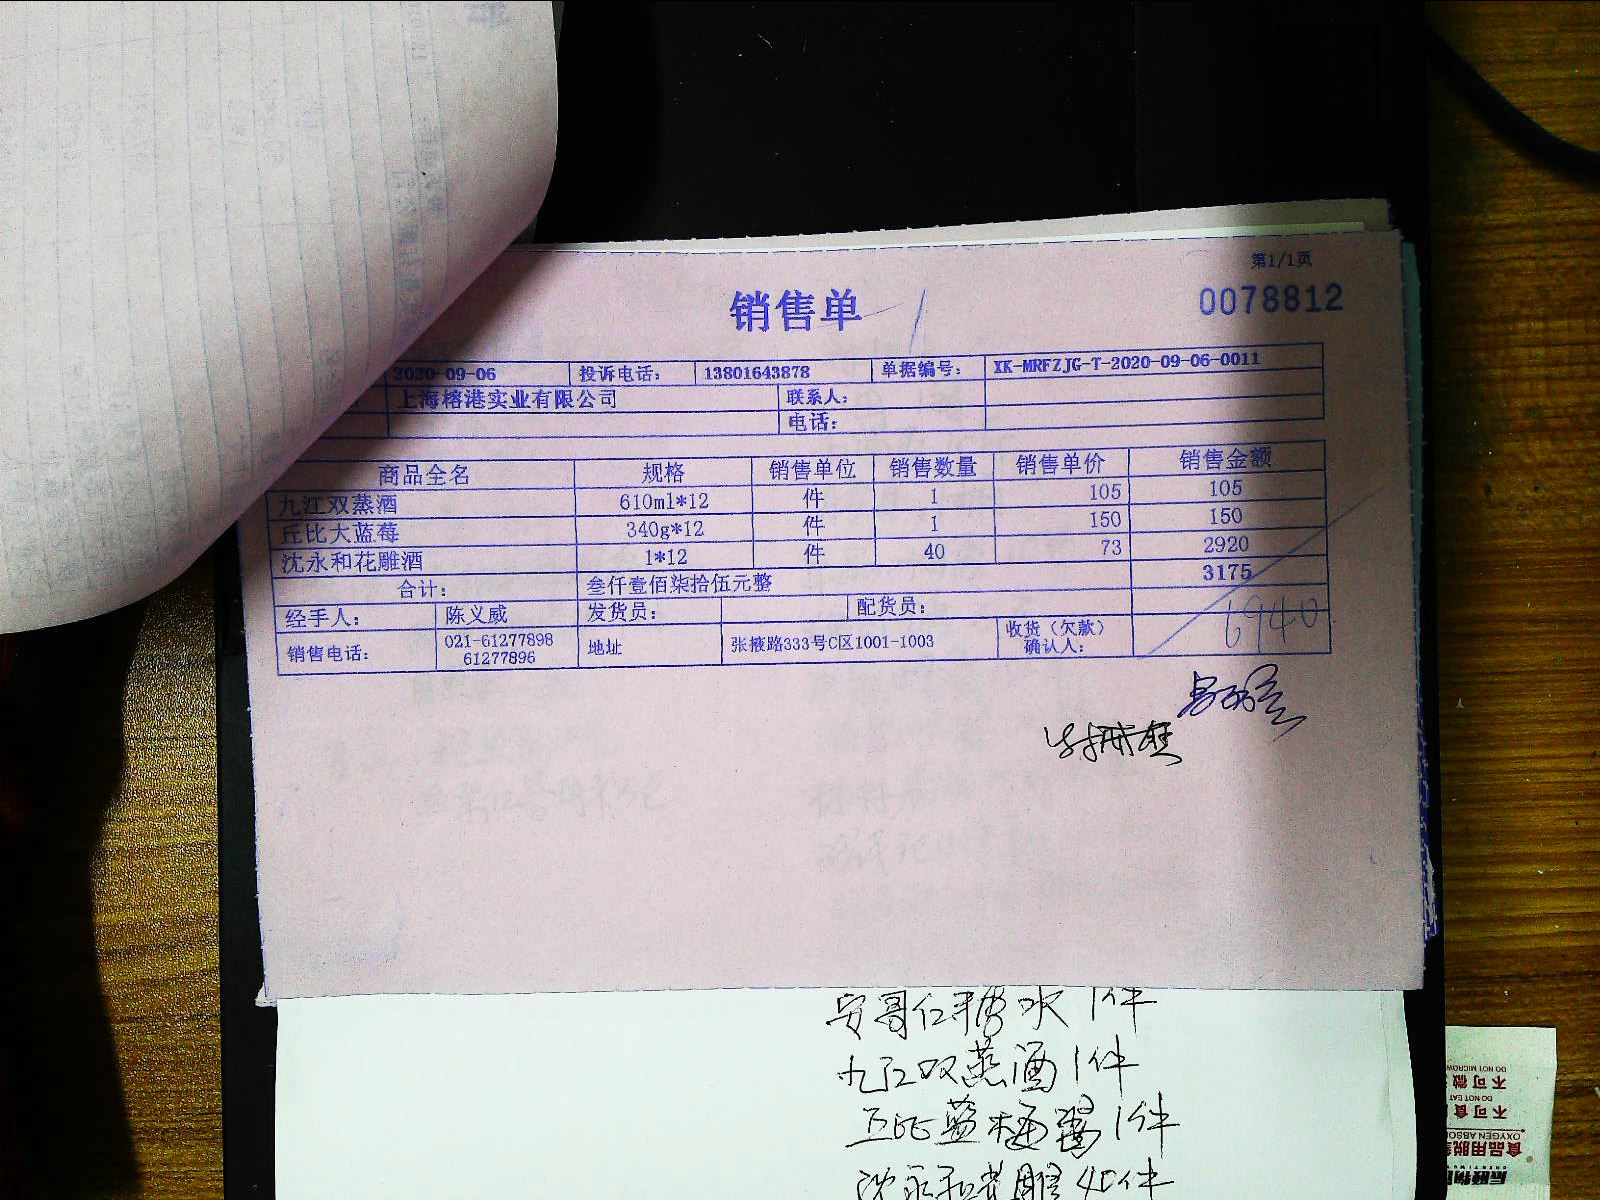 第1/1页
销售单
0078812
2020-09-06 投诉电话: 13801643878 单据编号: XK-MRFZJG-T-2020-09-06-0011
上海榕港实业有限公司 联系人:
电话:
商品全名 规格 销售单位 销售数量 销售单价 销售金额
九江双蒸酒 610ml*12 件 1 105 105
丘比大蓝莓 340g*12 件 1 150 150
沈永和花雕酒 1*12 件 40 73 2920
合计: 叁仟壹佰柒拾伍元整 3175
经手人: 陈义威 发货员: 配货员:
6940
销售电话: 021-61277898 61277896 地址 张掖路333号C区1001-1003 收货（欠款）确认人:
安哥仁糖水 1件
九江双蒸酒 1件
丘比蓝莓酱 1件
沈永和花雕 40件
DO NOT MICROW
不可微
DO NOT EAT
不可食
OXYGEN ABSO
食品用脱